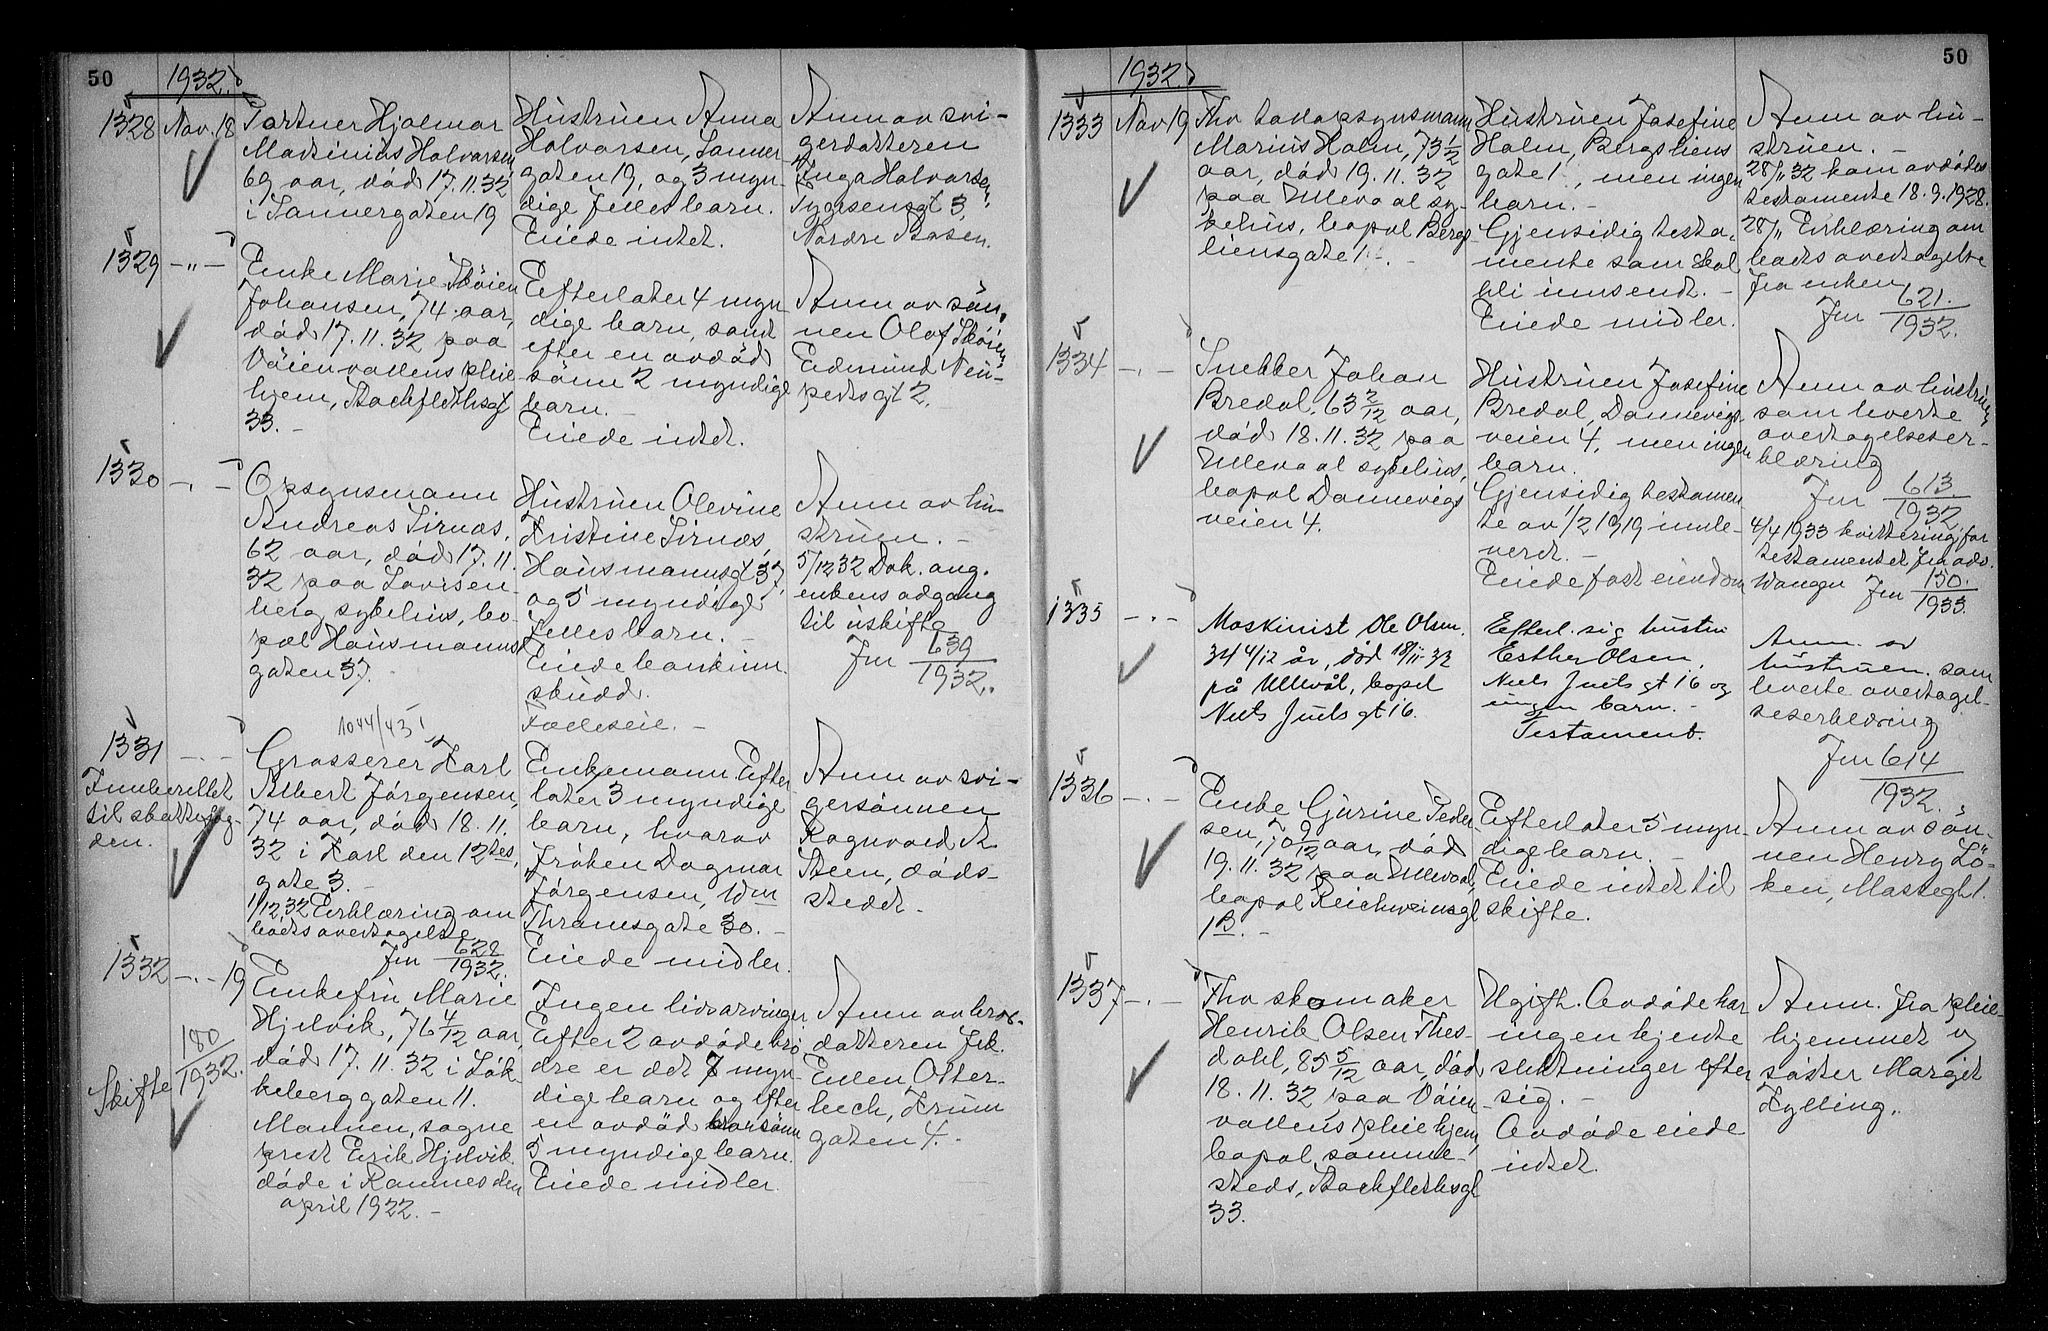 50
1932.
1328 Nov. 18
Portner Hjalmar
Martinius Halvorsen
69 aar, död 17.11.32
i Sannergaten 19
Hustruen Anna
Halvorsen, Sanner-
gaten 19, og 3 myn-
dige fellesbarn.
Eiede intet.
Anm av svi-
gerdatteren
Inga Halvorsen,
Nordre Aasen.
1329 -"-
Enke Marie Sköien
Johansen, 74 aar,
död 17.11.32 paa
Vöienvollens pleie
hjem, Stockflethsgt
33. -
Efterlater 4 myn
dige barn, samt
efter en avdöd
sönn 2 myndige
barn. -
Eiede intet.
Anm av sön,
nen Olaf Sköien
Edmund Neu-
pertsgt 2.
1330 -.-
Opsynsmann
Andreas Sirnæs,
62 aar, död 17.11.
32 paa Lovisen-
berg sykehus, bo-
pæl Hausmanns
gaten 37.
Hustruen Olevine
Kristine Sirnæs,
Hausmannsgt 37,
og 5 myndige
fellesbarn. -
Eiede bankinn
skudd.
Fælleseie. -
Anm av hu-
struen. -
5/12 32 Dok. ang.
enkens adgang
til uskifte
Jnr 639
1932.
1044/43
1331 -.-
Innberettet
til skattefog-
den.
Grosserer Karl
Albert Jörgensen,
74 aar, död 18.11.
32 i Karl den 12tes
gate 3. -
1/12 32 Erklæring om
boets overtagelse
Jnr 628
1932.
Enkemann. Efter
later 3 myndige
barn, hvorav
Fröken Dagmar
Jörgensen, Wm
Thranesgate 30. -
Eiede midler.
Anm av svi-
gersönnen
Ragnvald A
Steen, döds-
stedet. -
1332 -.- 19
Skifte 180
1932.
Enkefru Marie
Hjelvik, 76 4/12 aar,
död 17.11.32 i Løk-
keberggaten 11.
Mannen, sogne
prest Eirik Hjelvik
döde i Ramnes den
april 1922. -
Ingen livsarvinger
Efter 2 avdöde brö
dre er det 7 myn-
dige barn og efter
en avdöd brorsönn
5 myndige barn.
Eiede midler.
Anm av bror-
datteren Frk.
Ellen Otter-
bech, Krum
gaten 4. -
50
1932.
1333 Nov 19
Fhv tolloppsynsmann
Marius Holm, 73 1/2
aar, död 19.11.32
paa Ullevaal sy-
kehus, bopæl Bergs
liensgate 1. -
Hustruen Josefine
Holm, Bergsliens
gate 1, men ingen
barn. -
Gjensidig testa-
mente som skal
bli innsendt. -
Eiede midler.
Anm av hu-
struen. -
28/11 32 kom avdödes
testamente 18.9.1928.
28/11 Erklæring om
boets overtagelse
fra enken
Jnr 621.
1932.
1334 -.-
Snekker Johan
Bredal, 63 2/12 aar,
död 18.11.32 paa
Ullevaal sykehus,
bopæl Dannevigs
veien 4.
Hustruen Josefine
Bredal, Dannevigs
veien 4, men ingen
barn.
Gjensidig testamen
te av 1/2 1919 innle-
vert. -
Eiede fast eiendom
Anm av hustruen
som leverte
overtagelseser-
klæring
Jnr 613.
1932.
4/4 1933 kvittering for
testamentet fra adv.
Wangen Jnr 150.
1933.
1335 -.-
Maskinist Ole Olsen,
34 4/12 år, död 18/11-32
på Ullevål, bopel
Niels Juels gt 16.
Efterl. sig hustru
Esther Olsen,
Niels Juels gt 16 og
ingen barn. -
Testament.
Anm. av
hustruen. som
leverte overtagel-
seserklæring
Jnr 614
1932.
1336 -.-
Enke Gurine Peder
sen, 70 9/12 aar, död
19.11.32 paa Ullevaal,
bopæl Reichweinsgt
1B. -
Efterlater 5 myn-
dige barn. -
Eiede intet til
skifte.
Anm av sön-
nen Henry Lö-
ken, Massegt 1.
1337 -.-
Fhv skomaker
Henrik Olsen Thes-
dahl, 85 5/12 aar, död
18.11.32 paa Vöien
vollens pleiehjem,
bopæl samme-
steds, Stockflethsgt
33.
Ugift. Avdöde har
ingen kjente
slektninger efter
sig. -
Avdöde eiede
intet.
Anm. fra pleie-
hjemmet v
söster Margit
Kylling.